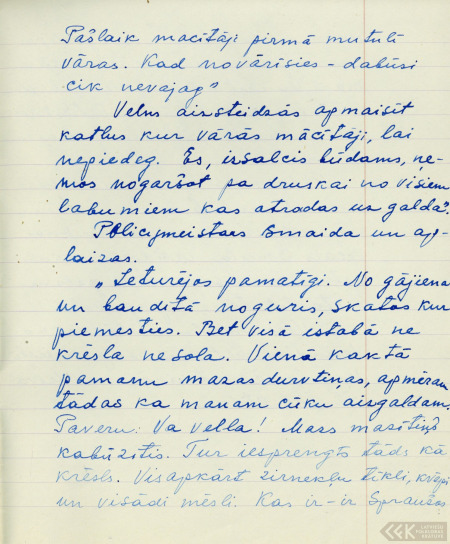 Pašlaik mācītāji pirmā mutulī
vāras. Kad novārīsies – dabūsi
cik nevajag"
Velns aizsteidzās apmaisīt
katlus kur vārās mācītāji, lai
nepiedeg. Es, izsalcis būdams, ņe-
mos nogaršot pa druskai no visiem
labumiem kas atrodas uz galda.
Policymeistars smaida un ap-
laizas.
„Ieturējos pamatīgi. No gājiena
un baudītā noguris, skatos kur
piemesties. Bet visā istabā ne
krēsla ne sola. Vienā kaktā
pamanu mazas durvtiņas, apmēram
tādas kā manam cūku aizgaldam.
Paveru: Va vella! Mazs mazītiņš
kabūzītis. Tur iesprengts tāds kā
krēsls. Visapkārt zirnekļu tīkli,
un visādi mēsli. Kas ir-ir Spraužos
LATVIEŠU
FOLKLORAS
KRĀTUVE